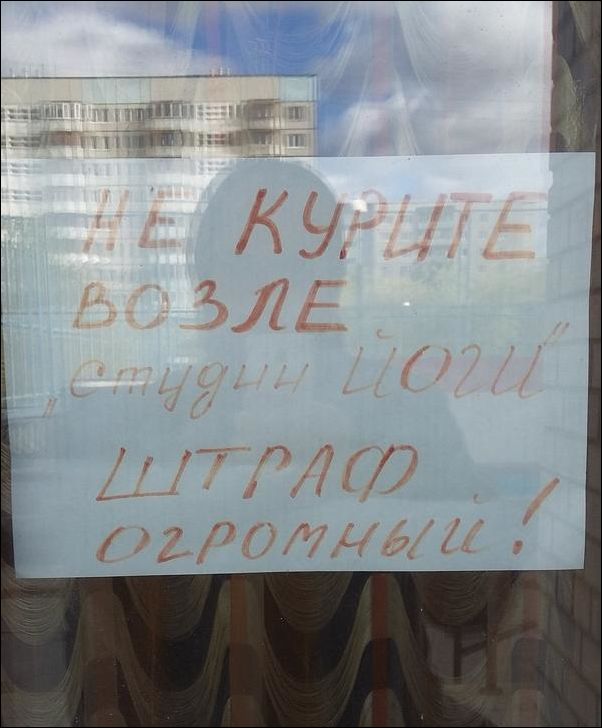 НЕ КУРИТЕ
ВОЗЛЕ
„Студии ЙОГИ"
ШТРАФ
ОГРОМНЫЙ!